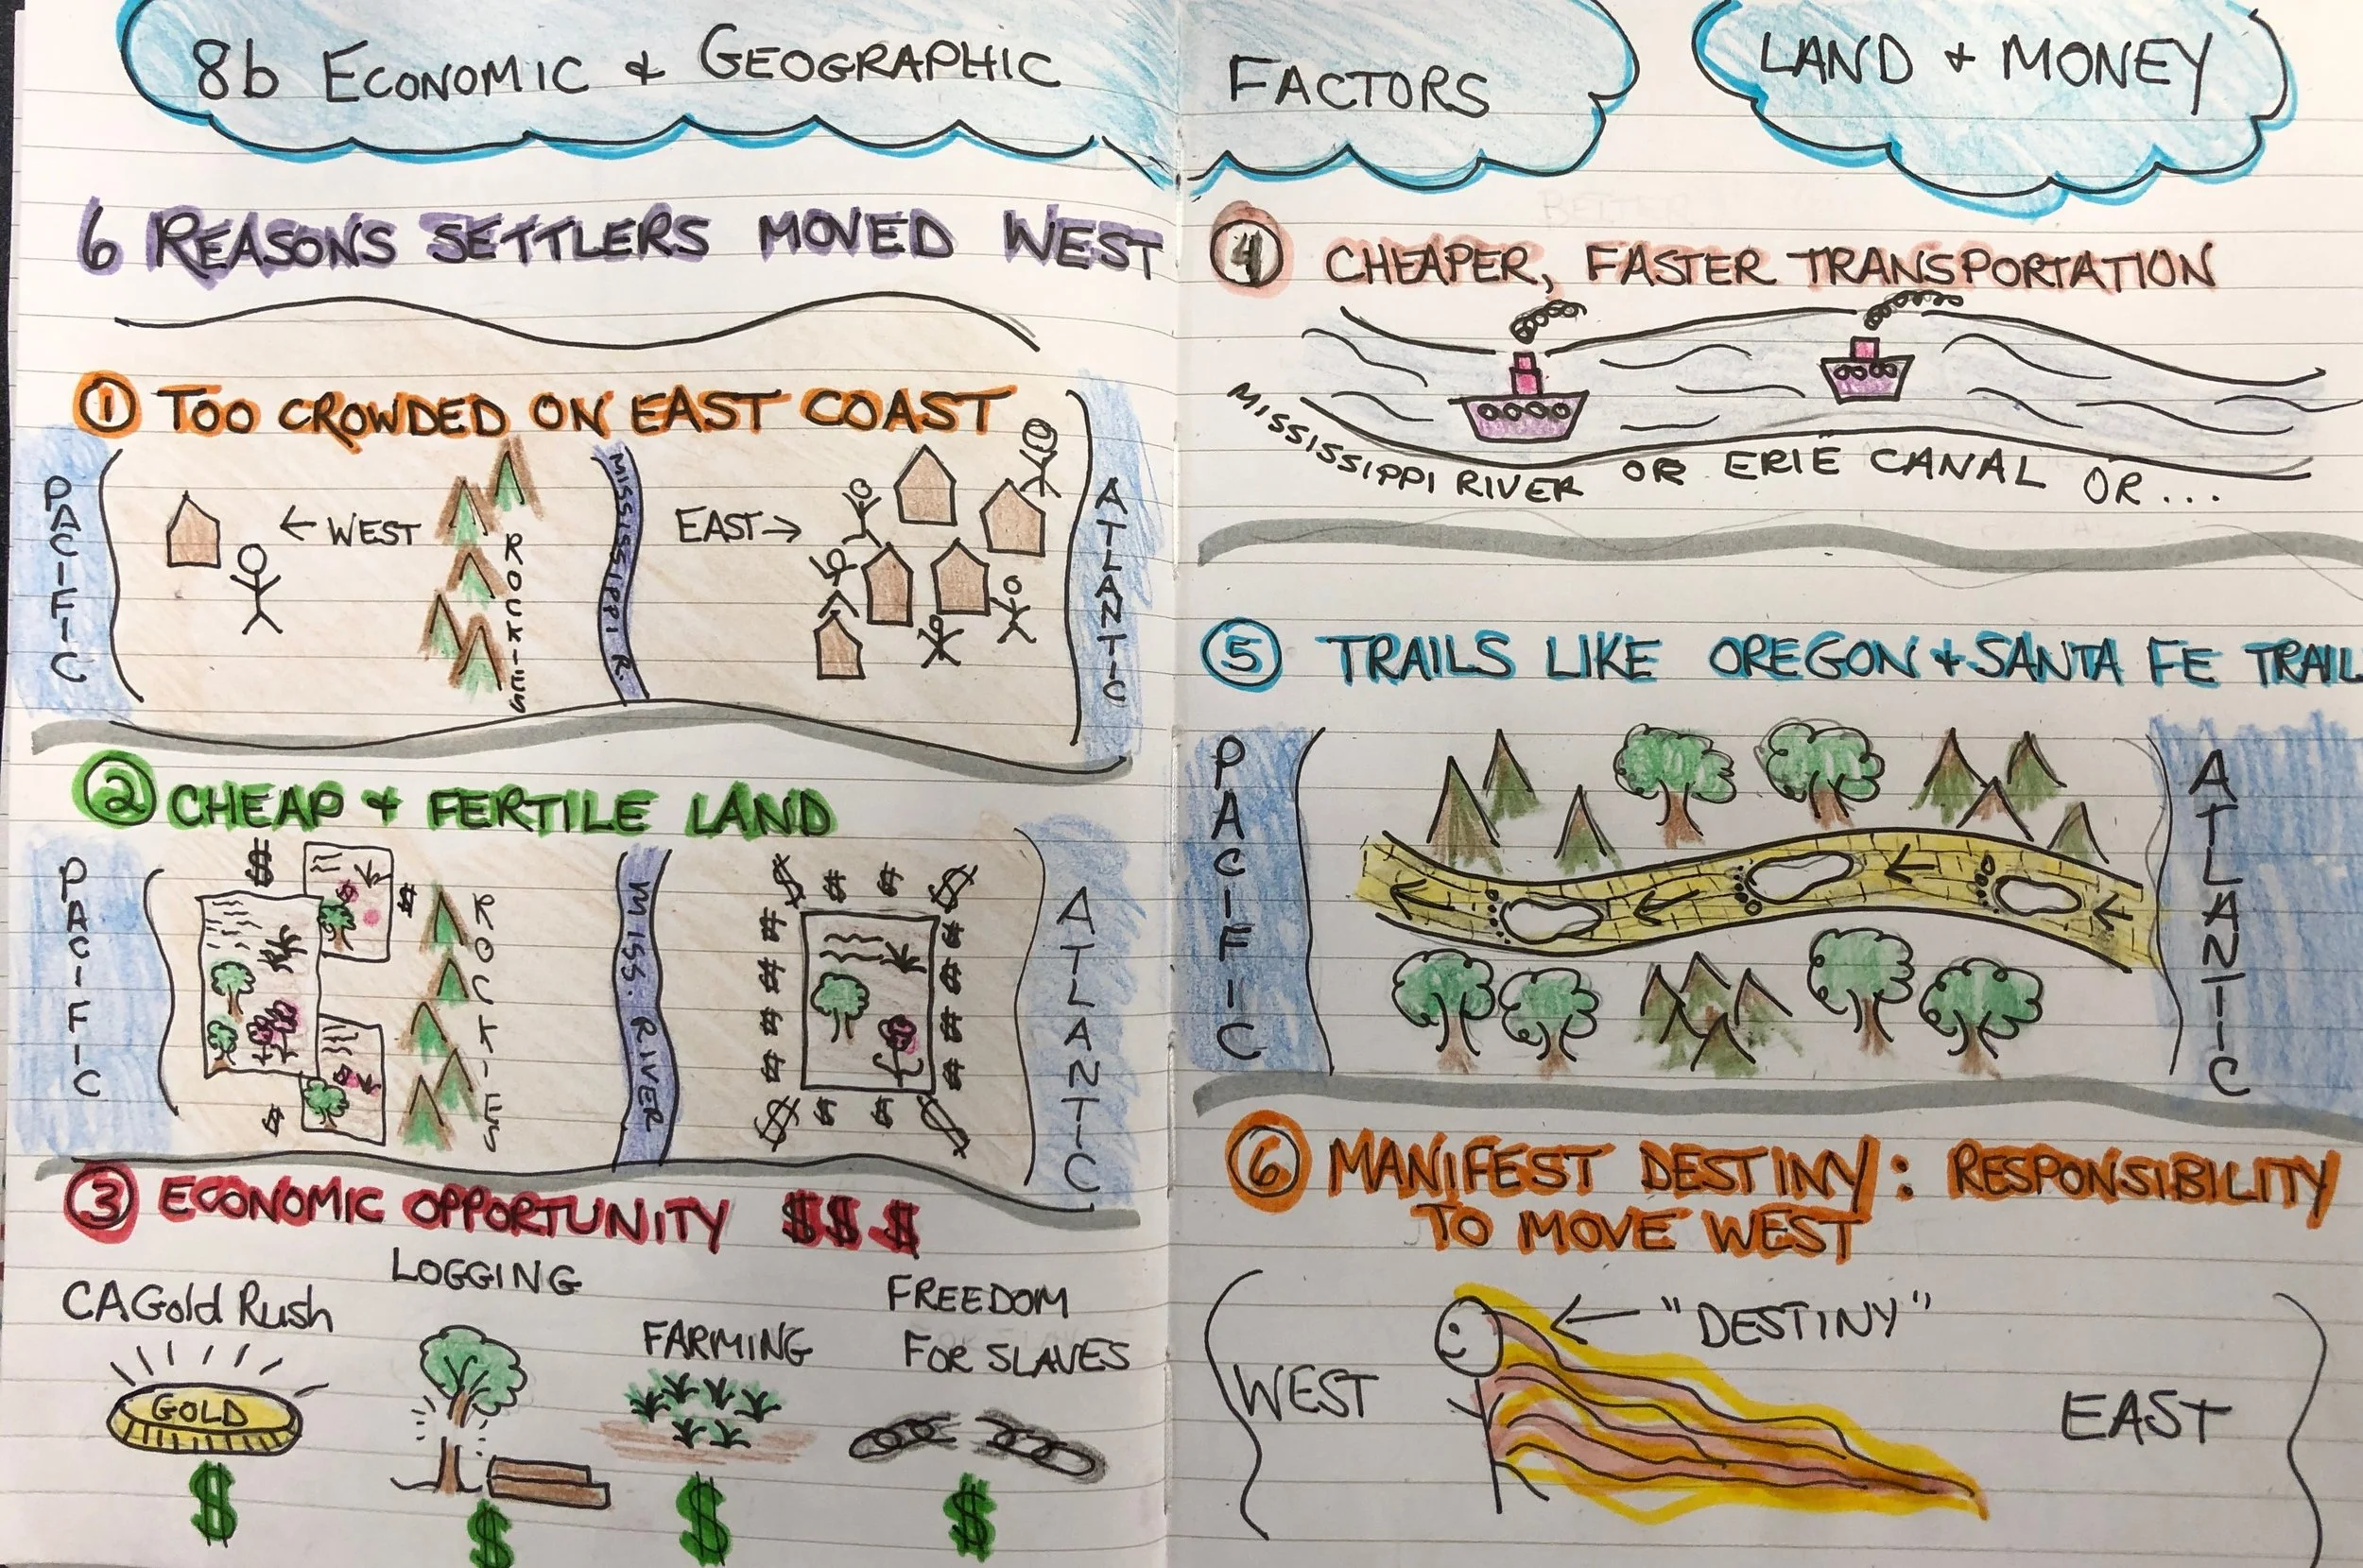 8b ECONOMIC & GEOGRAPHIC FACTORS
LAND & MONEY
6 REASONS SETTLERS MOVED WEST
① TOO CROWDED ON EAST COAST
PACIFIC
← WEST
ROCKIES
MISSISSIPPI R.
EAST →
ATLANTIC
② CHEAP & FERTILE LAND
PACIFIC
$
$
$
ROCKIES
MISS. RIVER
$ $ $ $
$ $
$ $
$ $
$ $
$ $ $ $
ATLANTIC
③ ECONOMIC OPPORTUNITY $$$
CA Gold Rush
GOLD
$
LOGGING
$
FARMING
$
FREEDOM
FOR SLAVES
$
④ CHEAPER, FASTER TRANSPORTATION
MISSISSIPPI RIVER OR ERIE CANAL OR...
⑤ TRAILS LIKE OREGON & SANTA FE TRAIL
PACIFIC
ATLANTIC
⑥ MANIFEST DESTINY: RESPONSIBILITY
TO MOVE WEST
← "DESTINY"
WEST
EAST